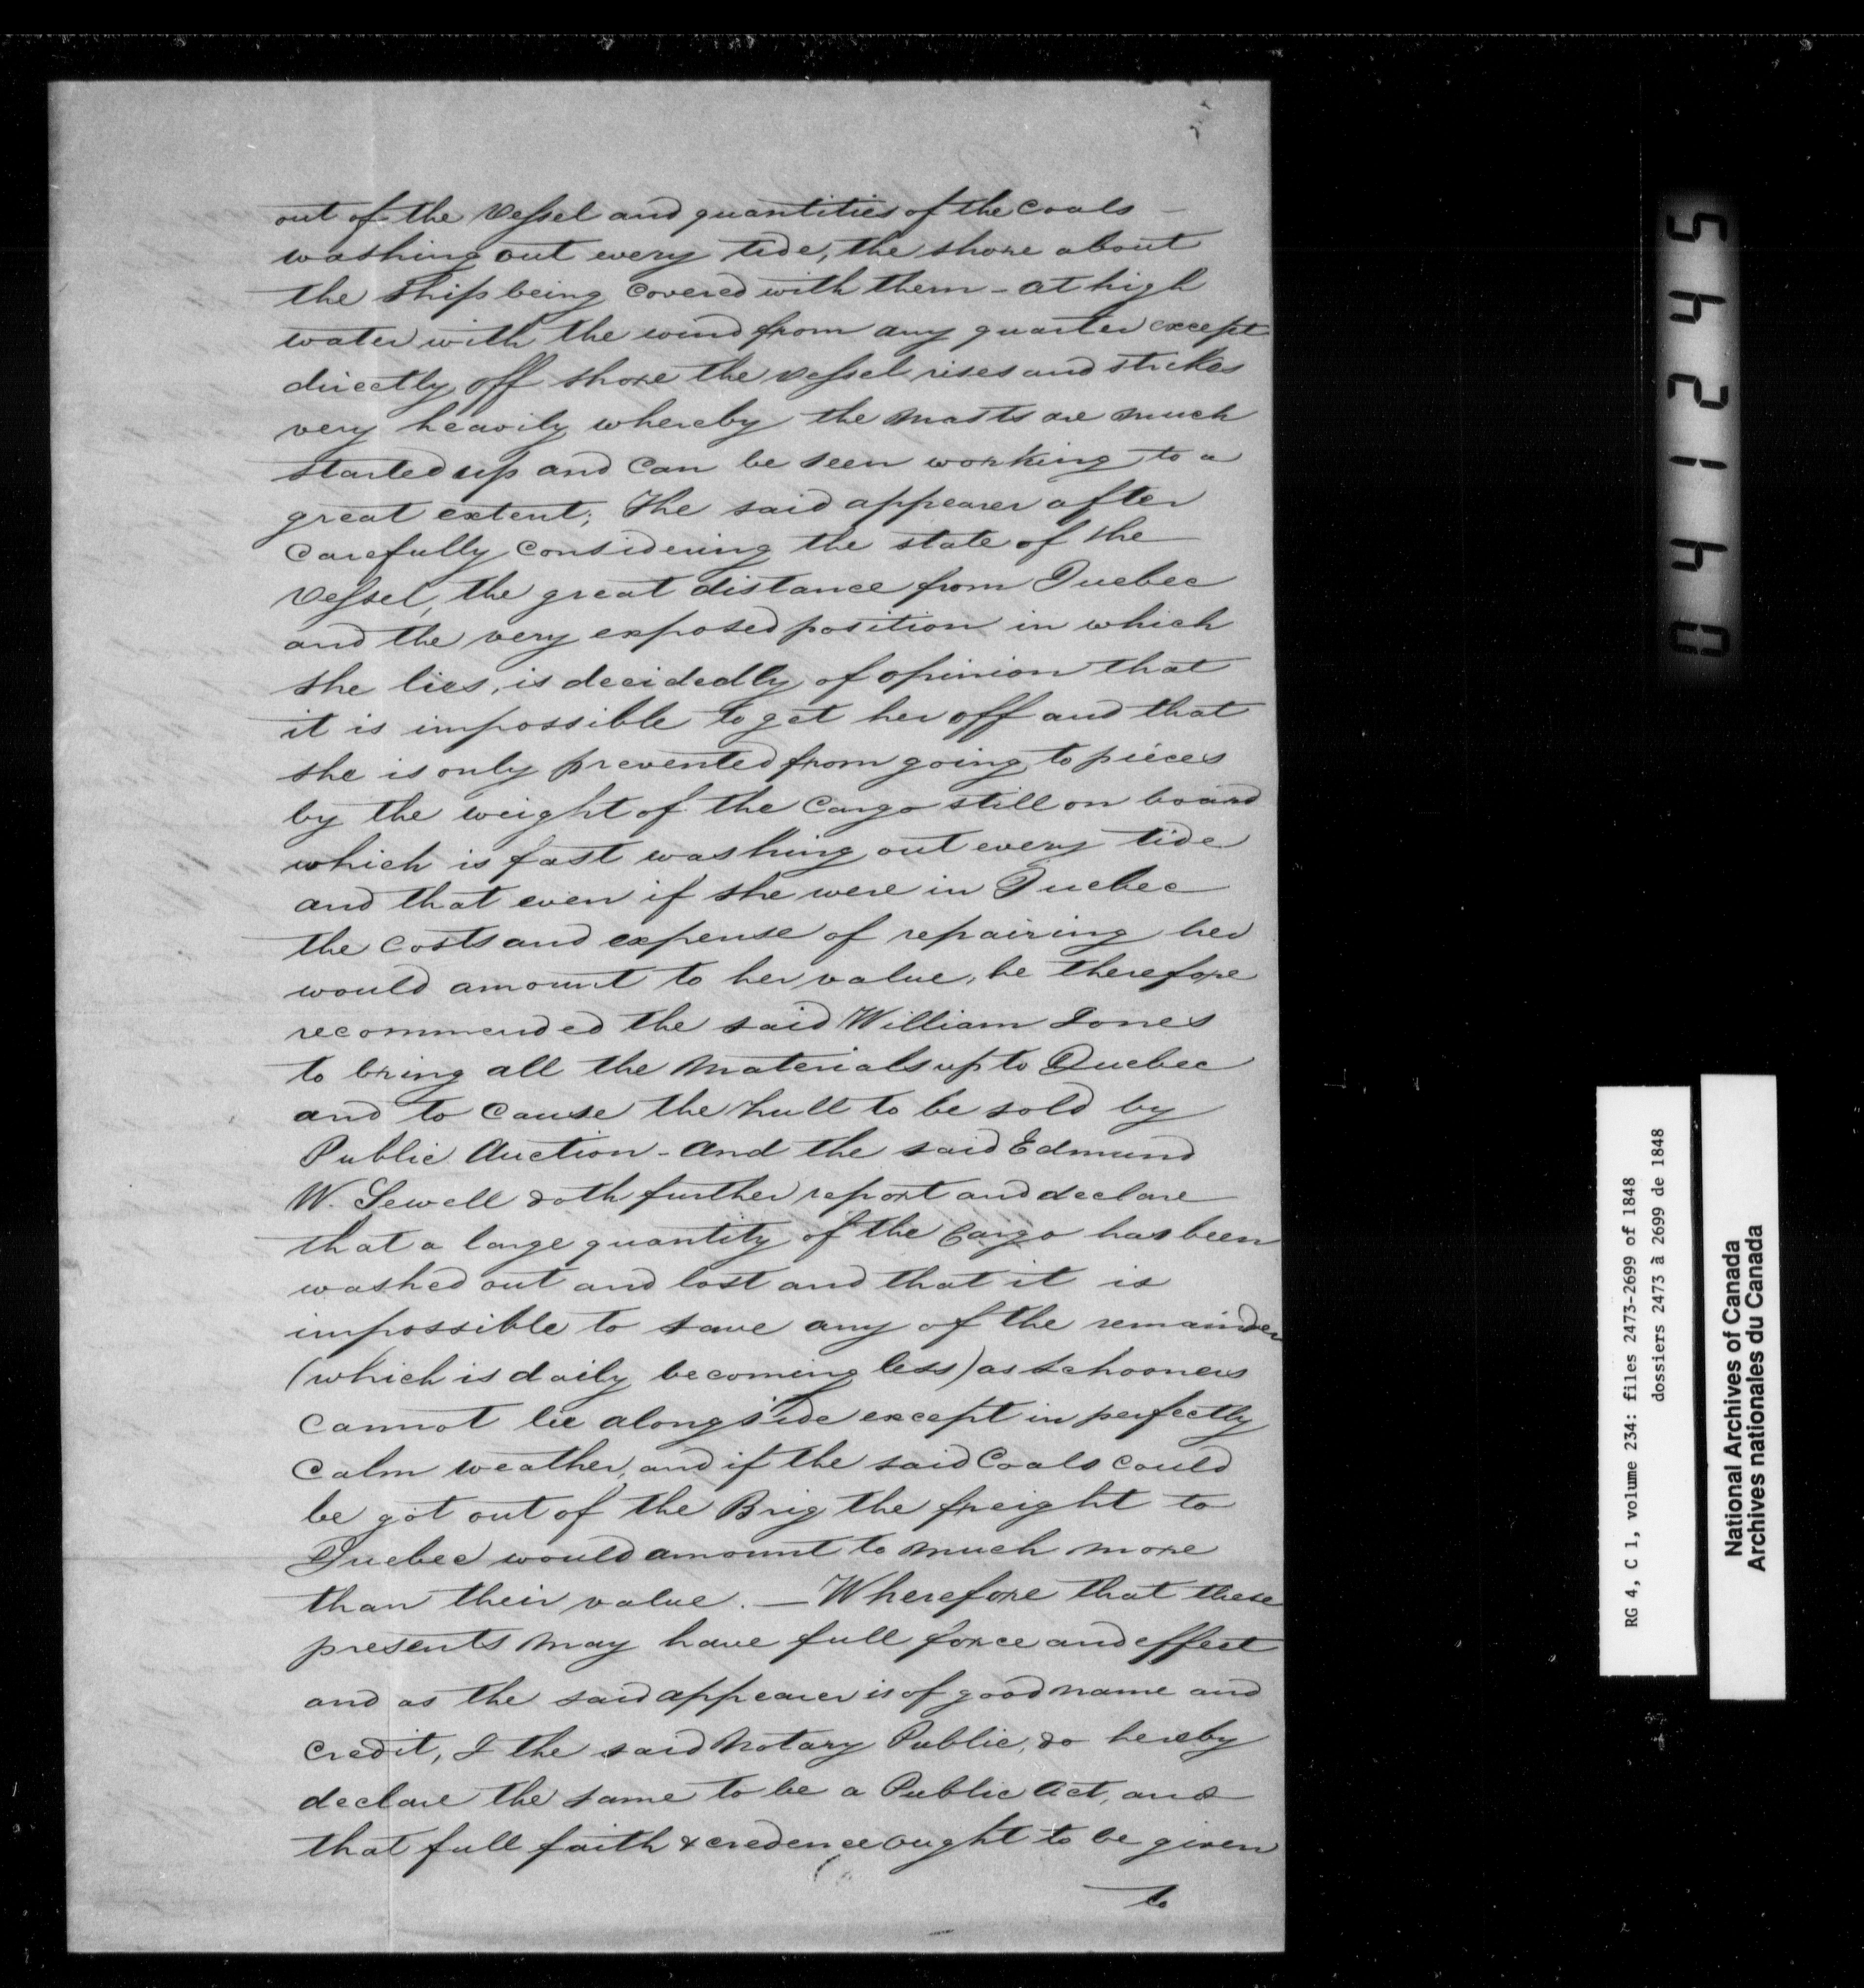 out of the Vessel and quantities of the Coals –
washing out every tide, the shore about
the Ship being Covered with them – at high
water with the wind from any quarter except
directly off shore the Vessel rises and strikes
very heavily whereby the Masts are much
started up and Can be seen working to a
great extent; The said appearer after
Carefully Considering the state of the
Vessel, the great distance from Quebec
and the very exposed position in which
she lies, is decidedly of opinion that
it is impossible to get her off and that
she is only prevented from going to pieces
by the weight of the Cargo still on board
which is fast washing out every tide
and that even if she were in Quebec
the Costs and expense of repairing her
would amount to her value, he therefore
recommended the said William Jones
to bring all the Materials up to Quebec
and to Cause the hull to be sold by
Public Auction – And the said Edmund
W. Sewell doth further report and declare
that a large quantity of the Cargo has been
washed out and lost and that it is
impossible to save any of the remainder
(which is daily becoming less) as schooners
Cannot lie alongside except in perfectly
Calm weather, and if the said Coals Could
be got out of the Brig the freight to
Quebec would amount to Much More
than their value. – Wherefore that these
presents May have full force and effect
and as the said appearer is of good name and
Credit, I the said Notary Public, do hereby
declare the same to be a Public Act, and
that full faith & credence ought to be given
to
042145
RG 4, C 1, volume 234: files 2473-2699 of 1848
dossiers 2473 à 2699 de 1848
National Archives of Canada
Archives nationales du Canada